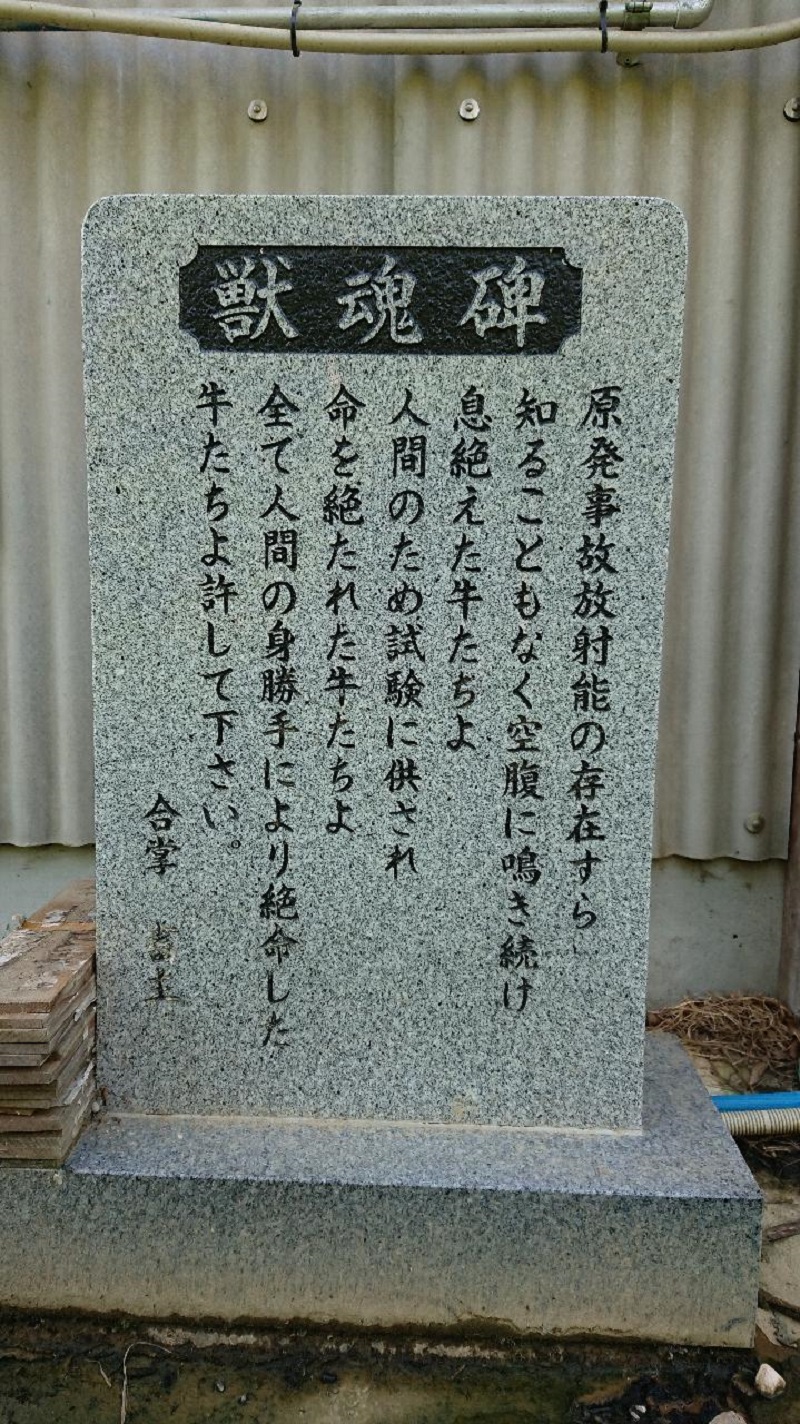 獣魂碑
原発事故放射能の存在すら
知ることもなく空腹に鳴き続け
息絶えた牛たちよ
人間のため試験に供され
命を絶たれた牛たちよ
全て人間の身勝手により絶命した
牛たちよ許して下さい。
合掌